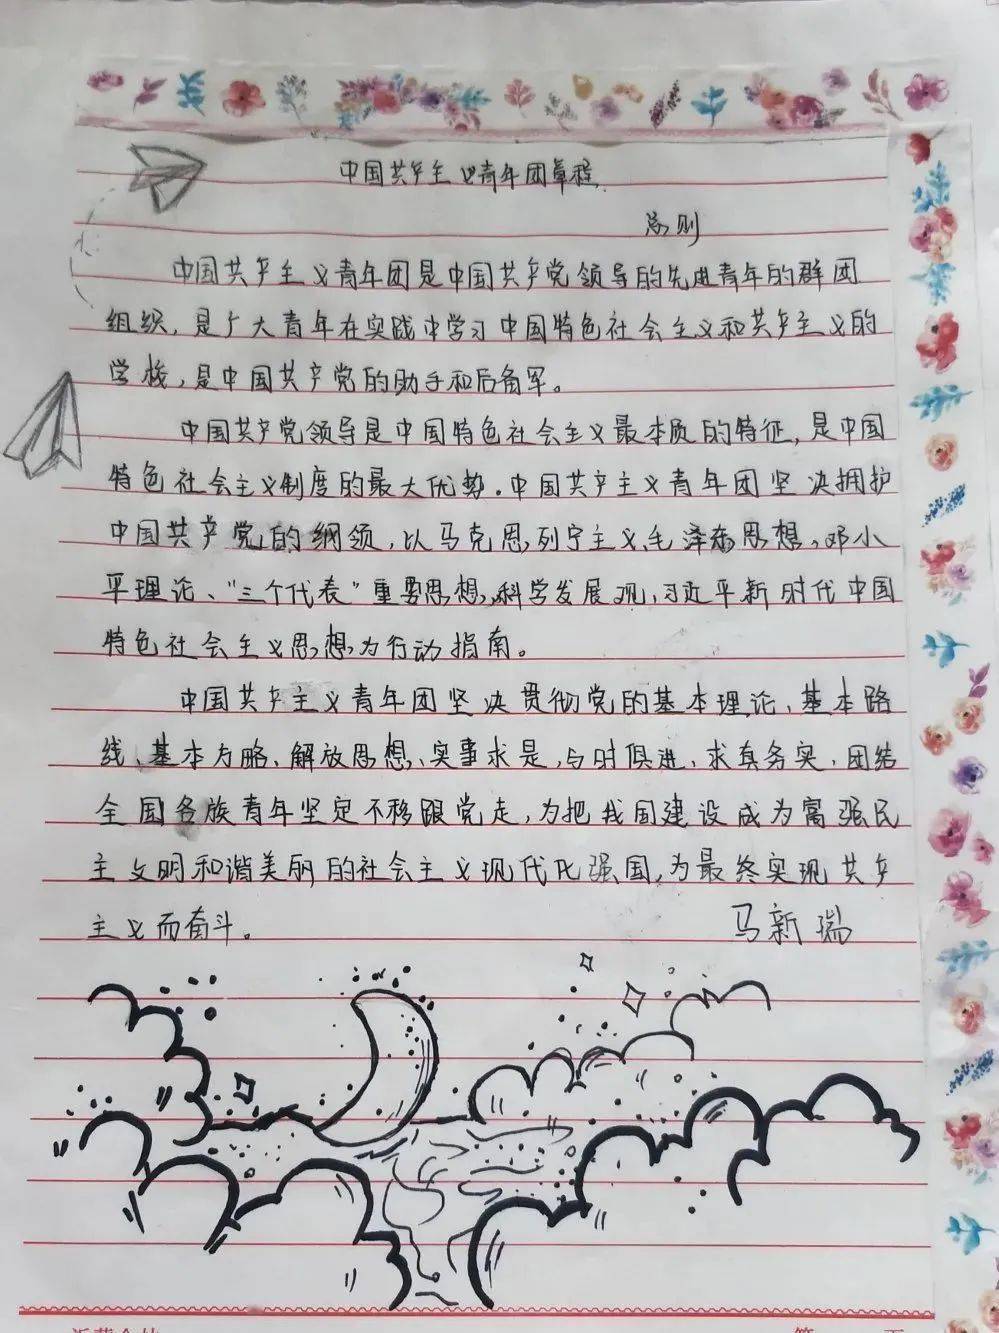 中国共产主义青年团章程
总则
中国共产主义青年团是中国共产党领导的先进青年的群团
组织，是广大青年在实践中学习中国特色社会主义和共产主义的
学校，是中国共产党的助手和后备军。
中国共产党领导是中国特色社会主义最本质的特征，是中国
特色社会主义制度的最大优势。中国共产主义青年团坚决拥护
中国共产党的纲领，以马克思列宁主义、毛泽东思想，邓小
平理论、“三个代表”重要思想，科学发展观，习近平新时代中国
特色社会主义思想为行动指南。
中国共产主义青年团坚决贯彻党的基本理论、基本路
线、基本方略、解放思想、实事求是，与时俱进，求真务实，团结
全国各族青年坚定不移跟党走，为把我国建设成为富强民
主文明和谐美丽的社会主义现代化强国，为最终实现共产
主义而奋斗。 马新瑞